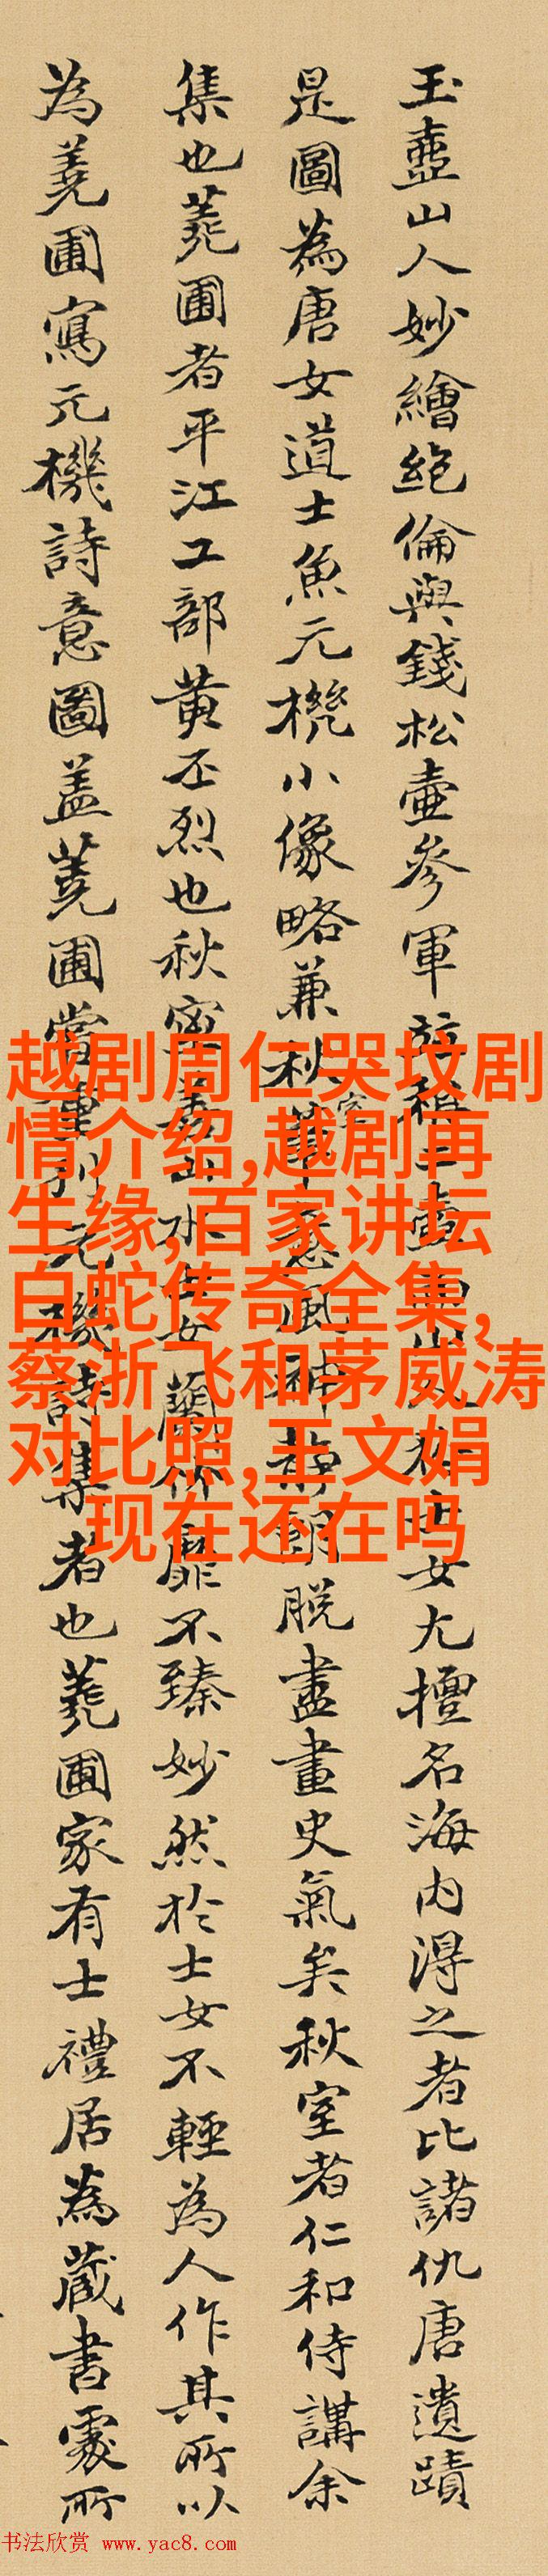 玉壺山人妙繪絶倫與錢松壺參軍 稱二壺 山人 士女尤擅名海内得之者比諸仇唐遺蹟
是圖為唐女道士魚元機小像略兼秋室 意風神静 脱盡畫史氣矣秋室者仁和侍講余
集也蕘圃者平江工部黄丕烈也秋室善山水 蘭竹靡不臻妙然於士女不輕為人作其所以
為蕘圃寫元機詩意圖盖蕘圃嘗重刊元機詩集者也蕘圃家有士禮居為蔵書處所
越剧周仁哭坟剧
情介绍,越剧再
生缘,百家讲坛
白蛇传奇全集,
蔡浙飞和茅威涛
对比照,王文娟
现在还在吗
书法欣赏 www.yac8.com